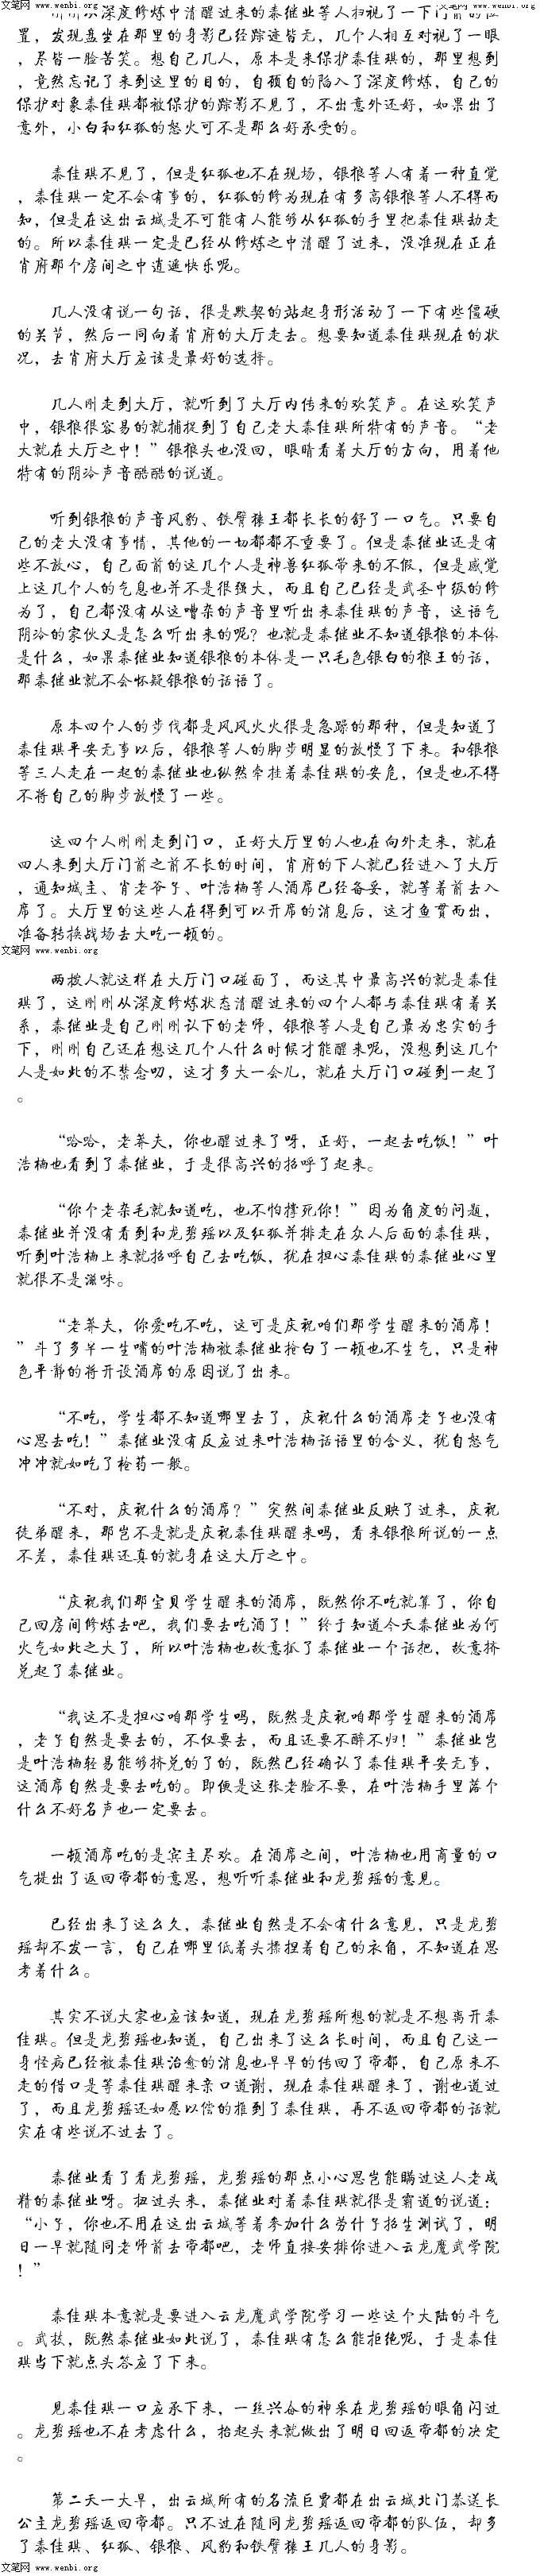 文笔网 www.wenbi.org 文笔网 www.wenbi.org
刚刚从深度修炼中清醒过来的秦继业等人扫视了一下门前的位
置，发现盘坐在那里的身影已经踪迹皆无，几个人相互对视了一眼
，尽皆一脸苦笑。想自己几人，原本是来保护秦佳琪的，那里想到
，竟然忘记了来到这里的目的，自顾自的陷入了深度修炼，自己的
保护对象秦佳琪都被保护的踪影不见了，不出意外还好，如果出了
意外，小白和红狐的怒火可不是那么好承受的。
秦佳琪不见了，但是红狐也不在现场，银狼等人有着一种直觉
，秦佳琪一定不会有事的，红狐的修为现在有多高银狼等人不得而
知，但是在这出云城是不可能有人能够从红狐的手里把秦佳琪劫走
的。所以秦佳琪一定是已经从修炼之中清醒了过来，没准现在正在
肖府那个房间之中逍遥快乐呢。
几人没有说一句话，很是默契的站起身形活动了一下有些僵硬
的关节，然后一同向着肖府的大厅走去。想要知道秦佳琪现在的状
况，去肖府大厅应该是最好的选择。
几人刚走到大厅，就听到了大厅内传来的欢笑声。在这欢笑声
中，银狼很容易的就捕捉到了自己老大秦佳琪所特有的声音。“老
大就在大厅之中！”银狼头也没回，眼睛看着大厅的方向，用着他
特有的阴冷声音酷酷的说道。
听到银狼的声音风豹、铁臂猿王都长长的舒了一口气。只要自
己的老大没有事情，其他的一切都都不重要了。但是秦继业还是有
些不放心，自己面前的这几个人是神兽红狐带来的不假，但是感觉
上这几个人的气息也并不是很强大，而且自己已经是武圣中级的修
为了，自己都没有从这嘈杂的声音里听出来秦佳琪的声音，这语气
阴冷的家伙又是怎么听出来的呢？也就是秦继业不知道银狼的本体
是什么，如果秦继业知道银狼的本体是一只毛色银白的狼王的话，
那秦继业就不会怀疑银狼的话语了。
原本四个人的步伐都是风风火火很是急躁的那种，但是知道了
秦佳琪平安无事以后，银狼等人的脚步明显的放慢了下来。和银狼
等三人走在一起的秦继业也纵然牵挂着秦佳琪的安危，但是也不得
不将自己的脚步放慢了一些。
这四个人刚刚走到门口，正好大厅里的人也在向外走来，就在
四人来到大厅门前之前不长的时间，肖府的下人就已经进入了大厅
，通知城主、肖老爷子、叶浩楠等人酒席已经备妥，就等着前去入
席了。大厅里的这些人在得到可以开席的消息后，这才鱼贯而出，
准备转换战场去大吃一顿的。
文笔网 www.wenbi.org 文笔网 www.wenbi.org
两拨人就这样在大厅门口碰面了，而这其中最高兴的就是秦佳
琪了，这刚刚从深度修炼状态清醒过来的四个人都与秦佳琪有着关
系，秦继业是自己刚刚认下的老师，银狼等人是自己最为忠实的手
下，刚刚自己还在想这几个人什么时候才能醒来呢，没想到这几个
人是如此的不禁念叨，这才多大一会儿，就在大厅门口碰到一起了
。
“哈哈，老莽夫，你也醒过来了呀，正好，一起去吃饭！”叶
浩楠也看到了秦继业，于是很高兴的招呼了起来。
“你个老杂毛就知道吃，也不怕撑死你！”因为角度的问题，
秦继业并没有看到和龙碧瑶以及红狐并排走在众人后面的秦佳琪，
听到叶浩楠上来就招呼自己去吃饭，犹在担心秦佳琪的秦继业心里
就很不是滋味。
“老莽夫，你爱吃不吃，这可是庆祝咱们那学生醒来的酒席！
”斗了多半一生嘴的叶浩楠被秦继业抢白了一顿也不生气，只是神
色平静的将开设酒席的原因说了出来。
“不吃，学生都不知道哪里去了，庆祝什么的酒席老子也没有
心思去吃！”秦继业没有反应过来叶浩楠话语里的含义，犹自怒气
冲冲就如吃了枪药一般。
“不对，庆祝什么的酒席？”突然间秦继业反映了过来，庆祝
徒弟醒来，那岂不是就是庆祝秦佳琪醒来吗，看来银狼所说的一点
不差，秦佳琪还真的就身在这大厅之中。
“庆祝我们那宝贝学生醒来的酒席，既然你不吃就算了，你自
己回房间修炼去吧，我们要去吃酒了！”终于知道今天秦继业为何
火气如此之大了，所以叶浩楠也故意抓了秦继业一个话把，故意挤
兑起了秦继业。
“我这不是担心咱那学生吗，既然是庆祝咱那学生醒来的酒席
，老子自然是要去的，不仅要去，而且还要不醉不归！”秦继业岂
是叶浩楠轻易能够挤兑的了的，既然已经确认了秦佳琪平安无事，
这酒席自然是要去吃的。即便是这张老脸不要，在叶浩楠手里落个
什么不好名声也一定要去。
一顿酒席吃的是宾主尽欢。在酒席之间，叶浩楠也用商量的口
气提出了返回帝都的意思，想听听秦继业和龙碧瑶的意见。
已经出来了这么久，秦继业自然是不会有什么意见，只是龙碧
瑶却不发一言，自己在哪里低着头揉捏着自己的衣角，不知道在思
考着什么。
其实不说大家也应该知道，现在龙碧瑶所想的就是不想离开秦
佳琪。但是龙碧瑶也知道，自己出来了这么长时间，而且自己这一
身怪病已经被秦佳琪治愈的消息也早早的传回了帝都，自己原来不
走的借口是等秦佳琪醒来亲口道谢，现在秦佳琪醒来了，谢也道过
了，而且龙碧瑶还如愿以偿的推到了秦佳琪，再不返回帝都的话就
实在有些说不过去了。
秦继业看了看龙碧瑶，龙碧瑶的那点小心思岂能瞒过这人老成
精的秦继业呀。扭过头来，秦继业对着秦佳琪就很是霸道的说道：
“小子，你也不用在这出云城等着参加什么劳什子招生测试了，明
日一早就随同老师前去帝都吧，老师直接安排你进入云龙魔武学院
！”
秦佳琪本意就是要进入云龙魔武学院学习一些这个大陆的斗气
。武技，既然秦继业如此说了，秦佳琪有怎么能拒绝呢，于是秦佳
琪当下就点头答应了下来。
见秦佳琪一口应承下来，一丝兴奋的神采在龙碧瑶的眼角闪过
。龙碧瑶也不在考虑什么，抬起头来就做出了明日回返帝都的决定
。
第二天一大早，出云城所有的名流巨贾都在出云城北门恭送长
公主龙碧瑶返回帝都。只不过在随同龙碧瑶返回帝都的队伍，却多
了秦佳琪、红狐、银狼、风豹和铁臂猿王几人的身影。
文笔网 www.wenbi.org 文笔网 www.wenbi.org